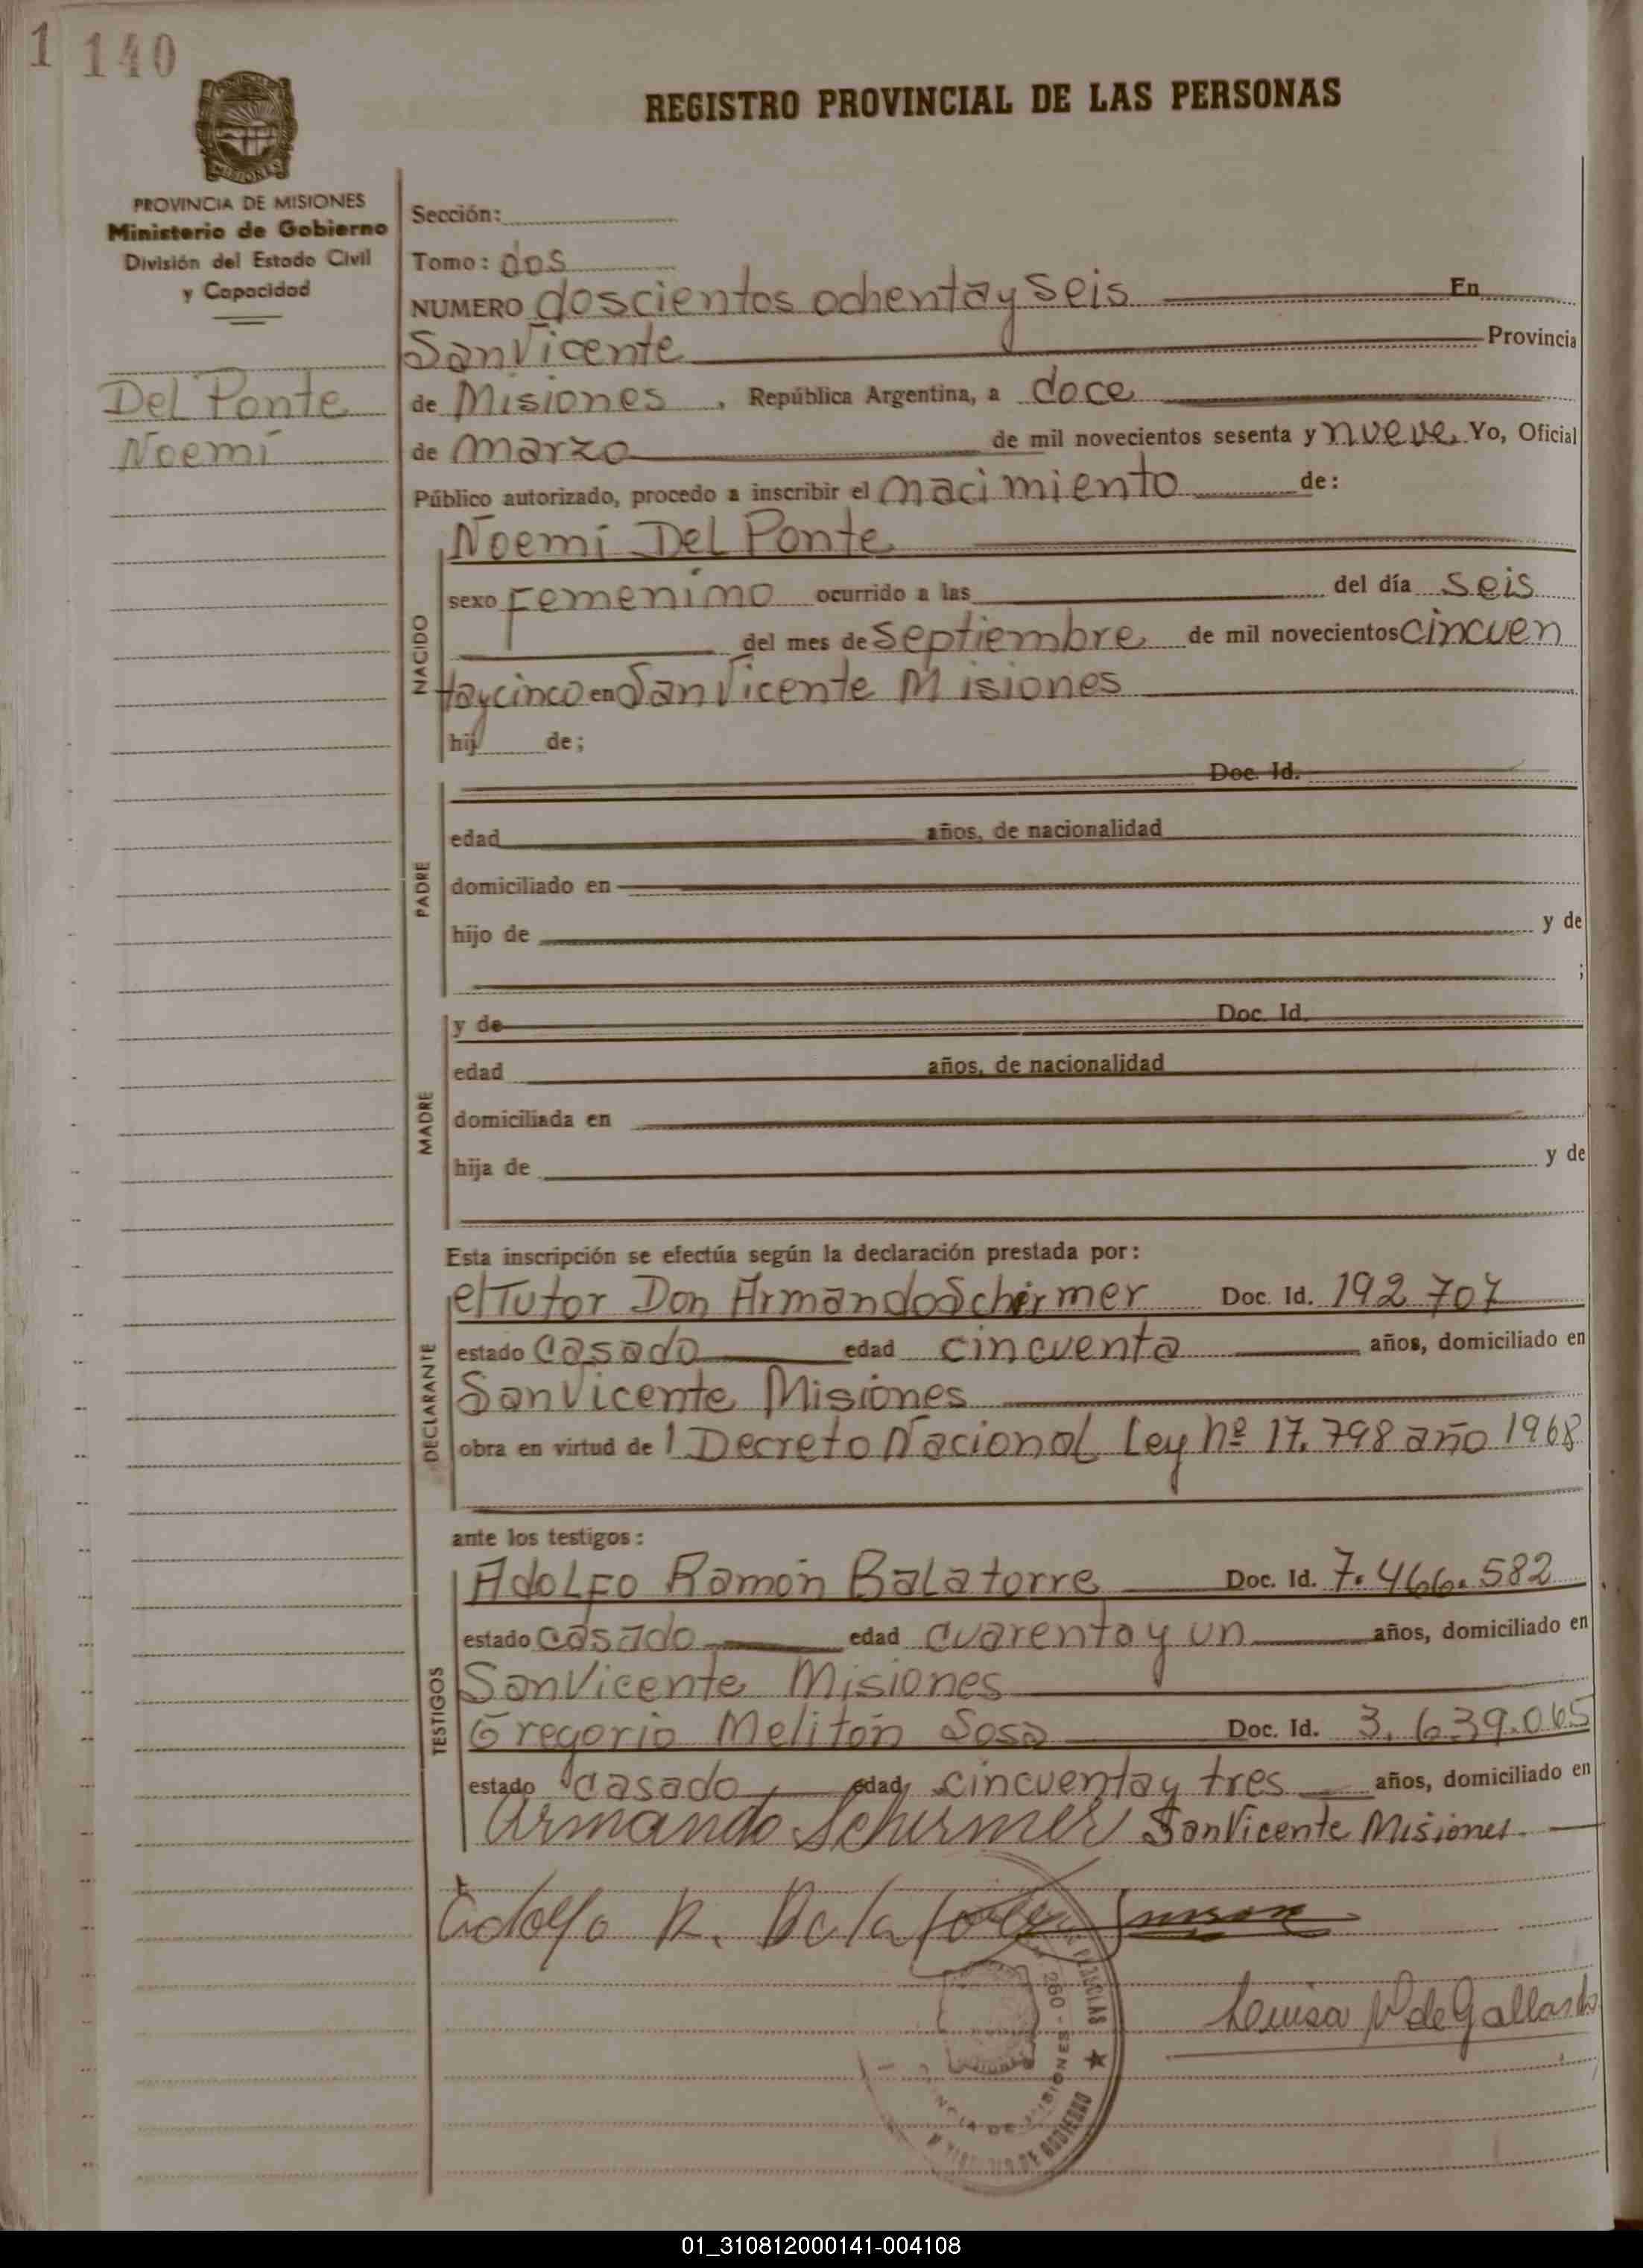 1 140
REGISTRO PROVINCIAL DE LAS PERSONAS
MISIONES
PROVINCIA DE MISIONES
Ministerio de Gobierno
División del Estado Civil
y Capacidad
Del Ponte
Noemí
Sección:
Tomo: dos
NUMERO doscientos ochenta y seis En
San Vicente Provincia
de Misiones, República Argentina, a doce
de marzo de mil novecientos sesenta y nueve. Yo, Oficial
Público autorizado, procedo a inscribir el nacimiento de:
NACIDO
Noemí Del Ponte
sexo Femenino ocurrido a las del día seis
del mes de septiembre de mil novecientos cincuen
ta y cinco en San Vicente Misiones
hij de;
PADRE
Doc. Id.
edad años, de nacionalidad
domiciliado en
hijo de y de
;
MADRE
y de Doc. Id.
edad años, de nacionalidad
domiciliada en
hija de y de
Esta inscripción se efectúa según la declaración prestada por:
DECLARANTE
el Tutor Don Armando Schirmer Doc. Id. 192707
estado casado edad cincuenta años, domiciliado en
San Vicente Misiones
obra en virtud de l Decreto Nacional Ley Nº 17.798 año 1968
ante los testigos:
TESTIGOS
Adolfo Ramón Balatorre Doc. Id. 7.466.582
estado casado edad cuarenta y un años, domiciliado en
San Vicente Misiones
Gregorio Melitón Sosa Doc. Id. 3.639.065
estado casado edad cincuenta y tres años, domiciliado en
Armando Schirmer San Vicente Misiones.
Adolfo R. Balatorre
Luisa V de Gallardo
260 - MISIONES
DE GOBIERNO
01_310812000141-004108